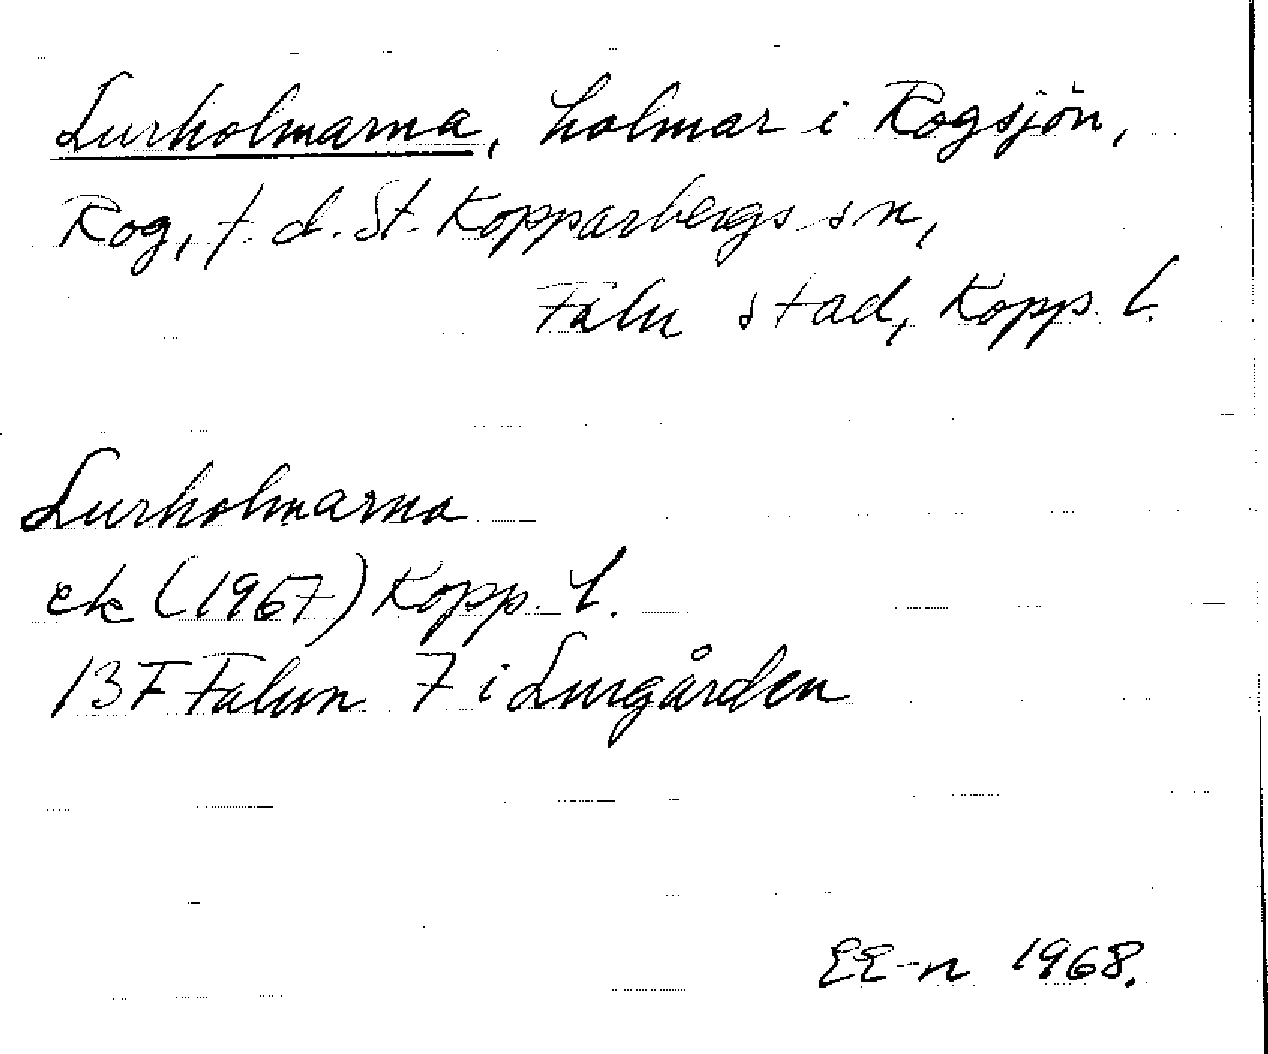 Lurholmarna, holmar i Rogsjön,
Rog, f.d. St. Kopparbergs sn,
Falu stad, Kopp. l.
Lurholmarna
ek (1967) Kopp. l.
13F Falun 7 i Lurgården
EE-n 1968.